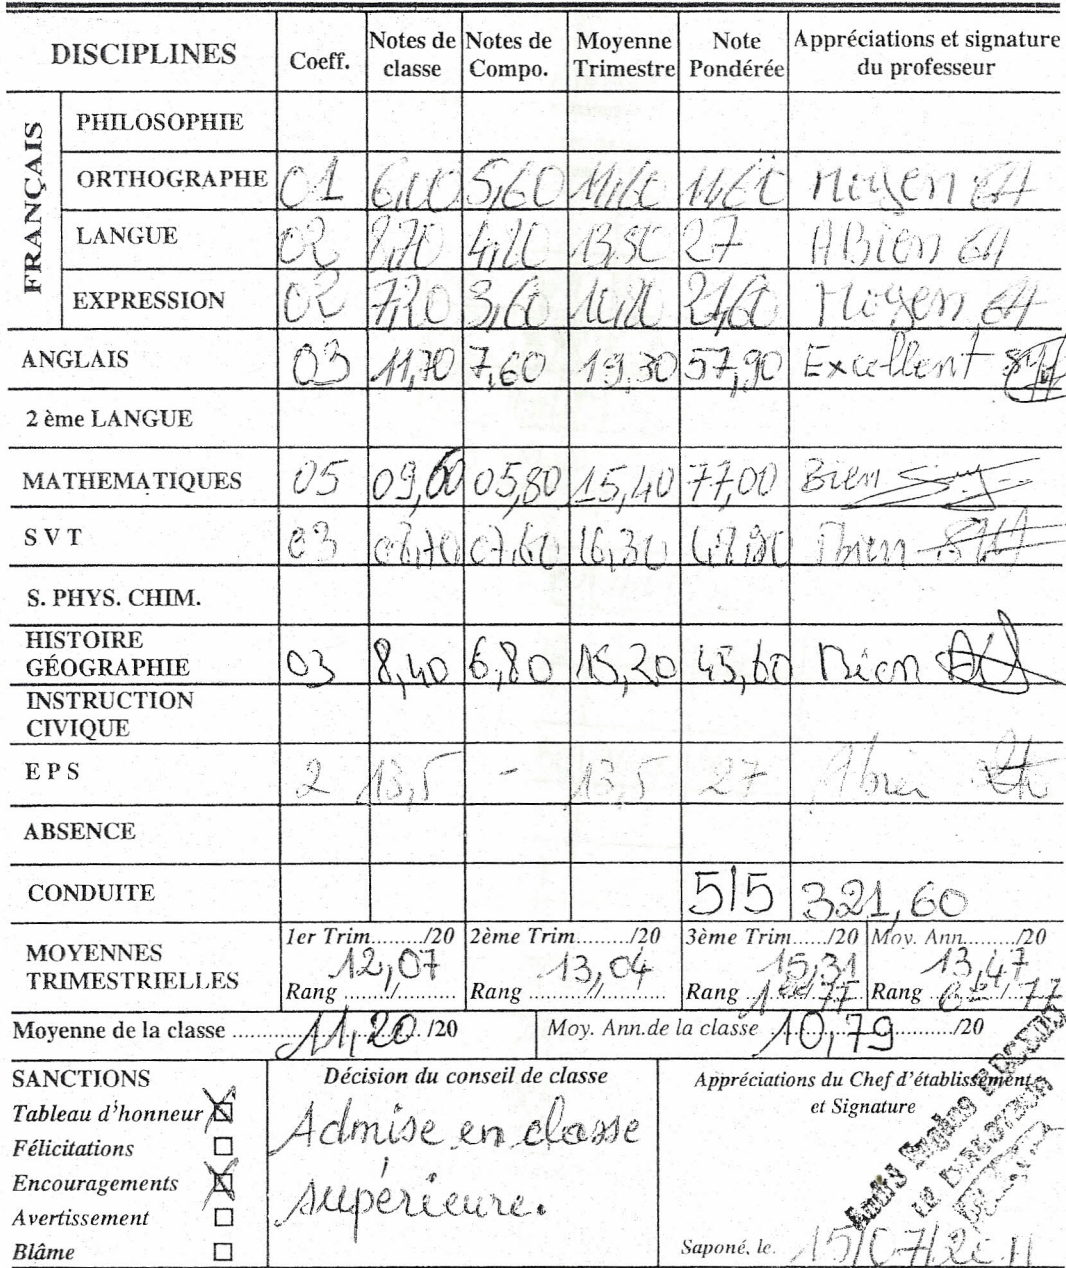 DISCIPLINES Coeff. Notes de classe Notes de Compo. Moyenne Trimestre Note Pondérée Appréciations et signature du professeur
FRANÇAIS
PHILOSOPHIE
ORTHOGRAPHE 01 6,00 5,60 11,60 11,60 moyen
LANGUE 02 4,20 13.50 27 ABien
EXPRESSION 02 7,20 3,60 10,80 21,60 Moyen
ANGLAIS 03 11,70 7,60 19,30 57,90 Excellent
2 ème LANGUE
MATHEMATIQUES 05 09,60 05,80 15,40 77,00 Bien
S V T 03 08,70 07,60 16,30 48,90 Tbien
S. PHYS. CHIM.
HISTOIRE GÉOGRAPHIE 03 8,40 6,80 15,20 45,60 Bien
INSTRUCTION CIVIQUE
E P S 2 13,5 - 13,5 27 Abien
ABSENCE
CONDUITE 5/5 321,60
MOYENNES TRIMESTRIELLES
1er Trim........./20 2ème Trim........./20 3ème Trim....../20 Moy. Ann........./20
12,07 13,04 15,31 13,47
Rang ......../.......... Rang ............//........... Rang 1ère/77 Rang 6e/77
Moyenne de la classe 11,20 /20 Moy. Ann.de la classe 10,79 /20
SANCTIONS
Tableau d'honneur
Félicitations
Encouragements
Avertissement
Blâme
Décision du conseil de classe
Admise en classe
supérieure.
Appréciations du Chef d'établissement
et Signature
Saponé, le. 15/07/2011